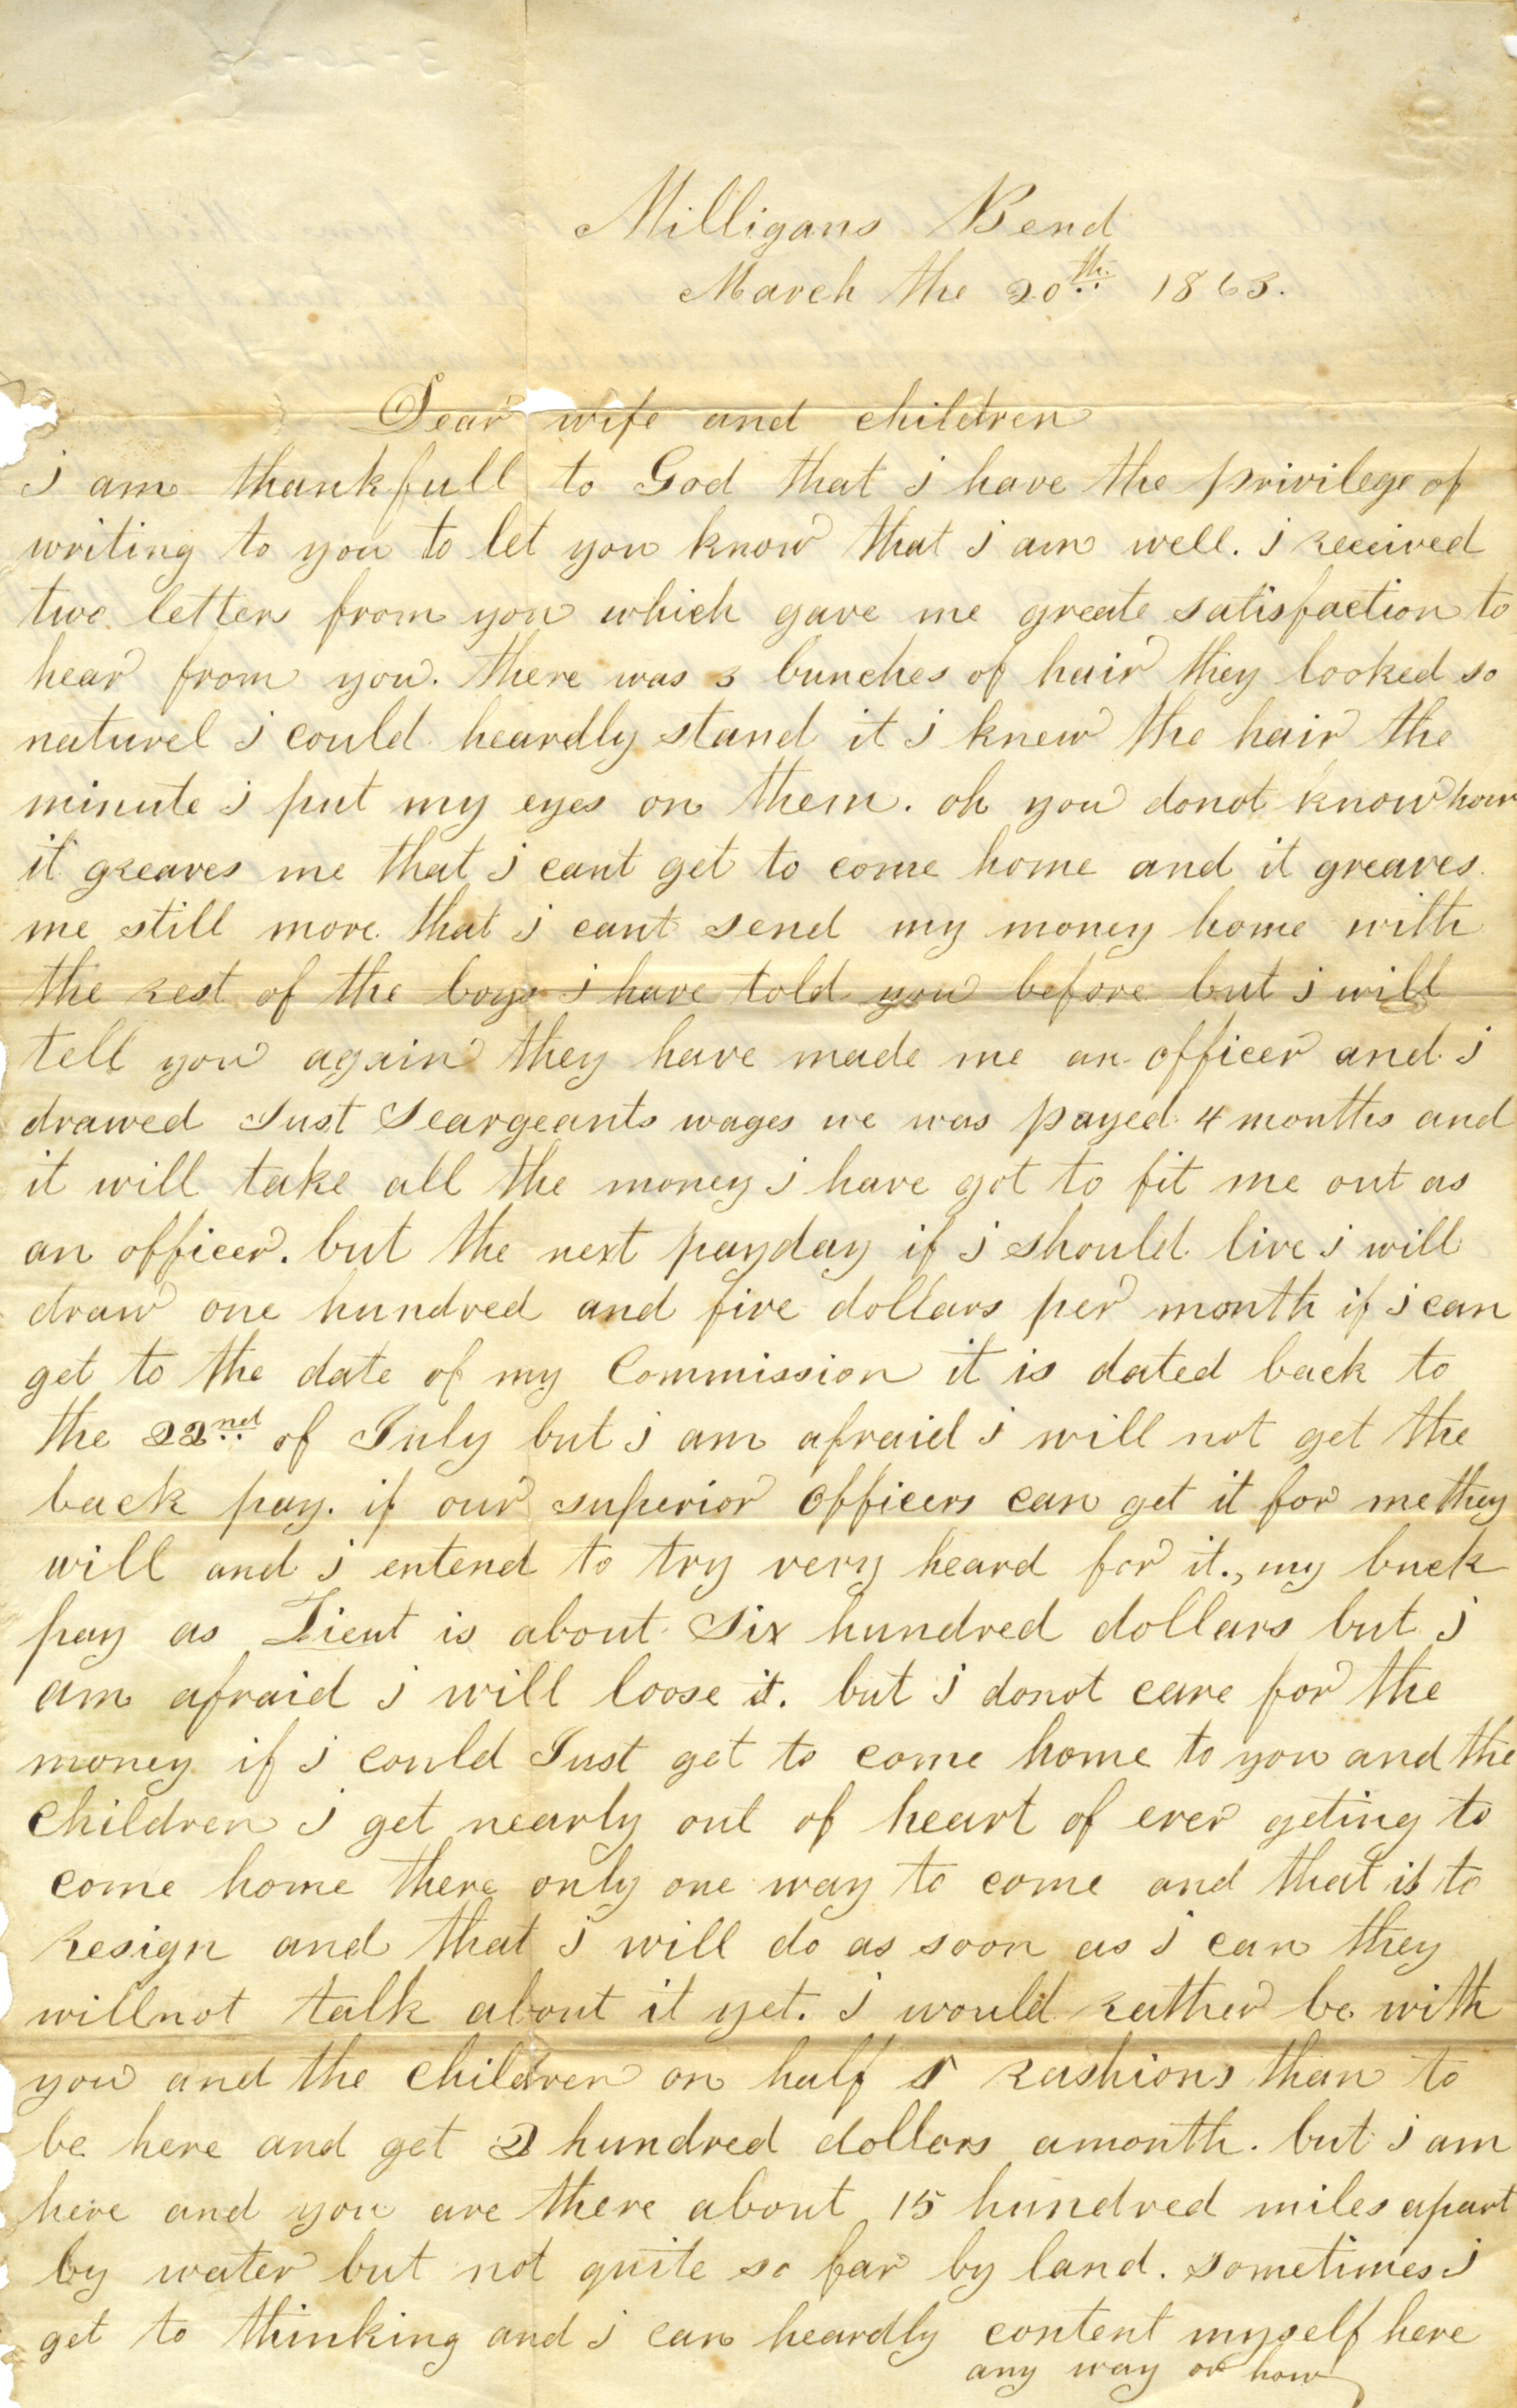 Milligans Bend
March the 20th 1863.
Dear wife and children
i am thankfull to God that i have the privilege of
writing to you to let you know that i am well. i received
two letters from you which gave me greate satisfaction to
hear from you. there was 3 bunches of hair they looked so
naturel i could heardly stand it i knew the hair the
minute i put my eyes on them. oh you donot know how
it greaves me that i cant get to come home and it greaves
me still more that i cant send my money home with
the rest of the boys i have told you before but i will
tell you again they have made me an officer and i
drawed Just Seargeants wages we was payed 4 months and
it will take all the money i have got to fit me out as
an officer. but the next payday if i should live i will
draw one hundred and five dollars per month if i can
get to the date of my Commission it is dated back to
the 22nd of July but i am afraid i will not get the
back pay. if our superior officers can get it for me they
will and i entend to try very heard for it., my back
pay as Lieut is about Six hundred dollars but i
am afraid i will loose it. but i donot care for the
money if i could Just get to come home to you and the
Children i get nearly out of heart of ever geting to
come home there only one way to come and that is to
resign and that i will do as soon as i can they
willnot talk about it yet. i would rather be with
you and the children on half rashions than to
be here and get 2 hundred dollars amonth. but i am
here and you are there about 15 hundred miles apart
by water but not quite so far by land. sometimes i
get to thinking and i can heardly content myself here
any way or how